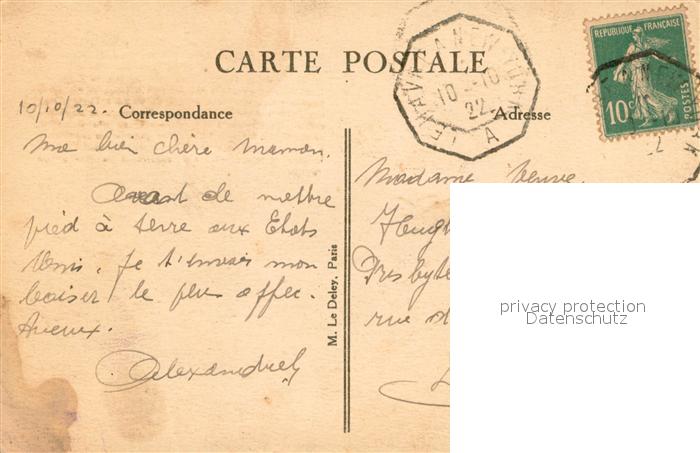 CARTE POSTALE
LE HAVRE A NEW YORK
10 - 10
22
A
REPUBLIQUE FRANÇAISE
10c
POSTES
10/10/22.
Correspondance
Adresse
Ma bien chère maman.
Avant de mettre
pied à terre aux Etats
Unis. Je t'envoies mon
baiser le plus affec-
tueux.
Madame Veuve
Presbyte
rue d
M. Le Deley, Paris
privacy protection
Datenschutz